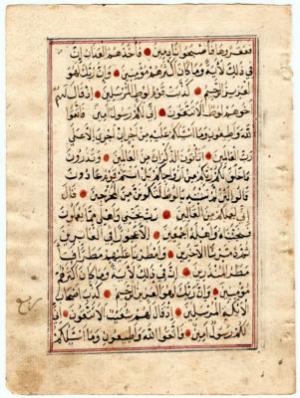 فعقروها فاصبحوا نادمين فاخذهم العذاب إن
في ذلك لآية وما كان اكثرهم مؤمنين وإن ربك لهو
العزيز الرحيم كذبت قوم لوط المرسلين إذ قال لهم
اخوهم لوط ألا تتقون إني لكم رسول أمين فاتقوا
الله وأطيعون وما أسئلكم عليه من أجر إن أجري إلا على
رب العالمين أتأتون الذكران من العالمين وتذرون
ما خلق لكم ربكم من أزواجكم بل أنتم قوم عادون
قالوا لئن لم تنته يا لوط لتكونن من المخرجين قال
إني لعملكم من القالين رب نجني وأهلي مما يعملون
فنجيناه وأهله أجمعين إلا عجوزا في الغابرين
ثم دمرنا الآخرين وأمطرنا عليهم مطرا فساء
مطر المنذرين إن في ذلك لآية وما كان أكثرهم
مؤمنين وإن ربك لهو العزيز الرحيم كذب أصحاب
الأيكة المرسلين إذ قال لهم شعيب ألا تتقون إني
لكم رسول أمين فاتقوا الله وأطيعون وما أسئلكم